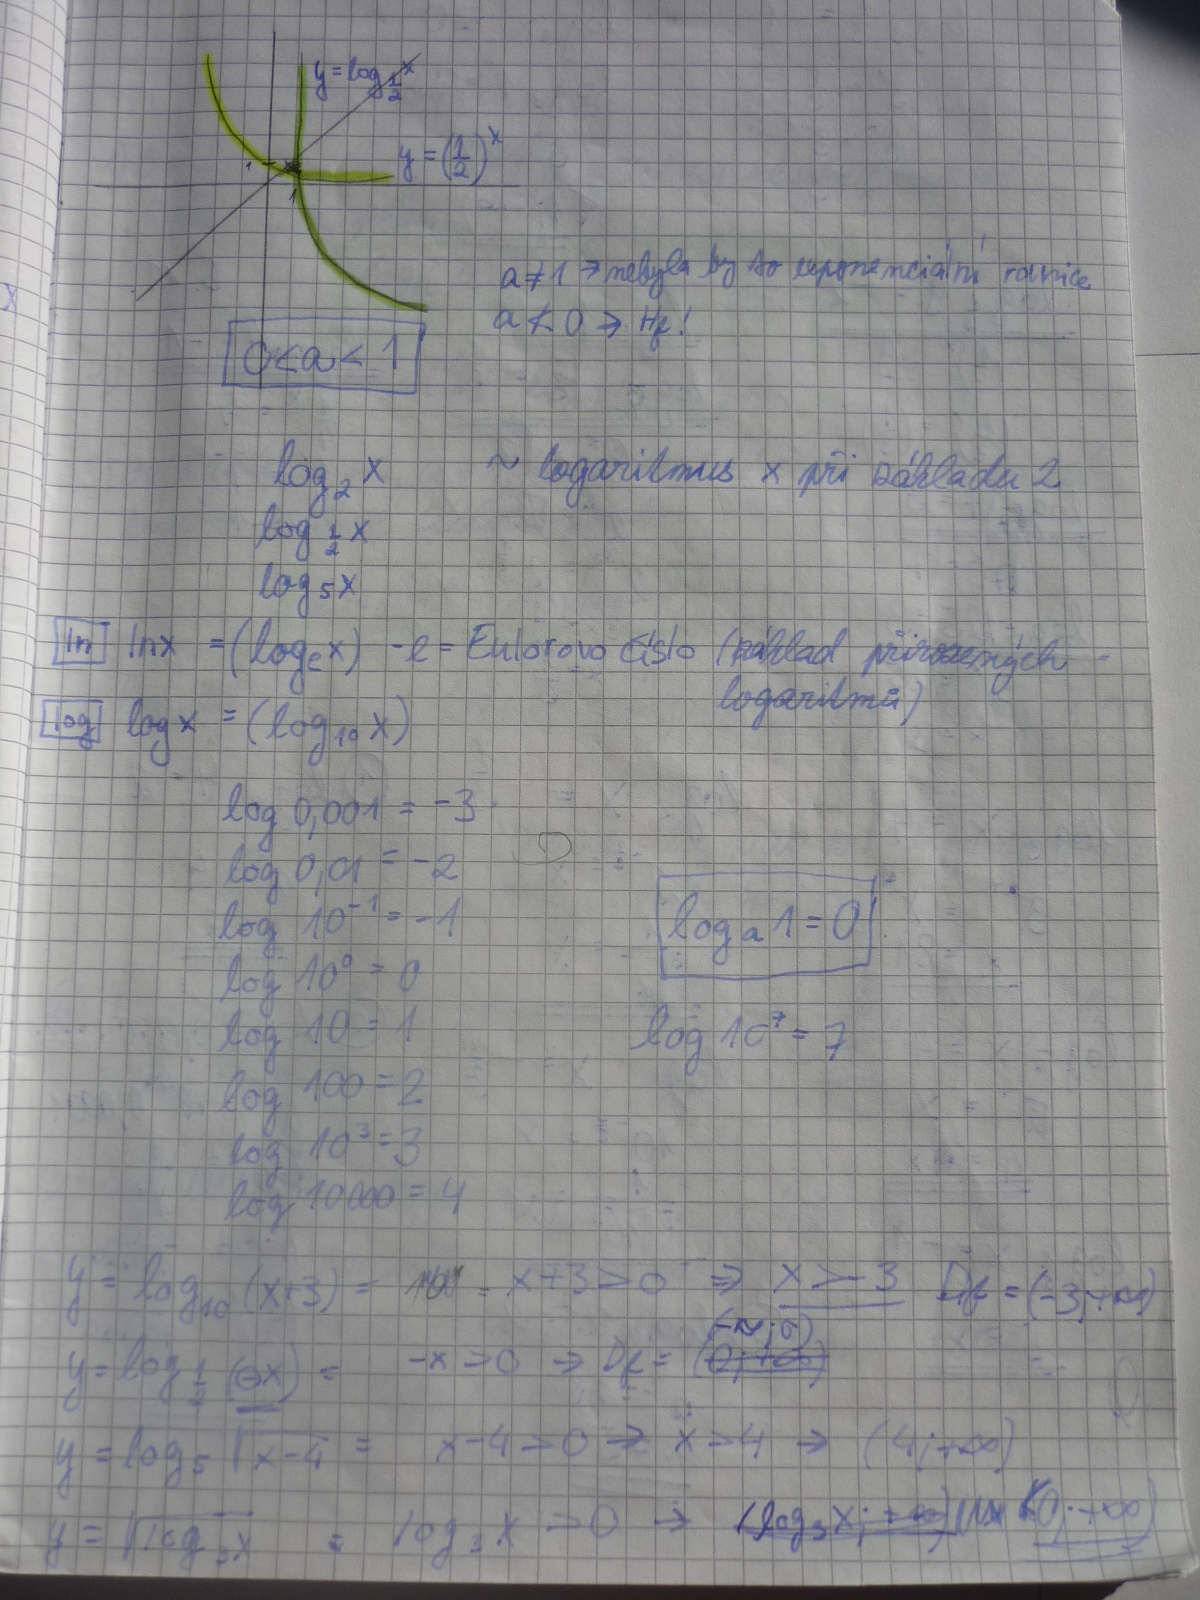 y = log_{1/2} x
1
y = (1/2)^x
1
a ≠ 1 → nebyla by to exponenciální rovnice
a ≮ 0 → Hf!
0 < a < 1
log₂ x ~ logaritmus x při základu 2
log_{1/2} x
log₅ x
ln ln x = (logₑ x) - e = Eulerovo číslo (základ přirozených -
logaritmů)
log log x = (log₁₀ x)
log 0,001 = -3
log 0,01 = -2
log 10⁻¹ = -1
logₐ 1 = 0
log 10⁰ = 0
log 10 = 1
log 10⁷ = 7
log 100 = 2
log 10³ = 3
log 10000 = 4
y = log₁₀ (x+3) = x+3 > 0 ⇒ x > -3 Df = (-3,+∞)
(-∞;0)
y = log_{1/2} (-x) = -x > 0 → Df = (0;+∞)
y = log₅ √x-4 = x-4 > 0 → x > 4 → (4;+∞)
y = √log₃x = log₃ x > 0 → (log₃x; +∞) 0;+∞)